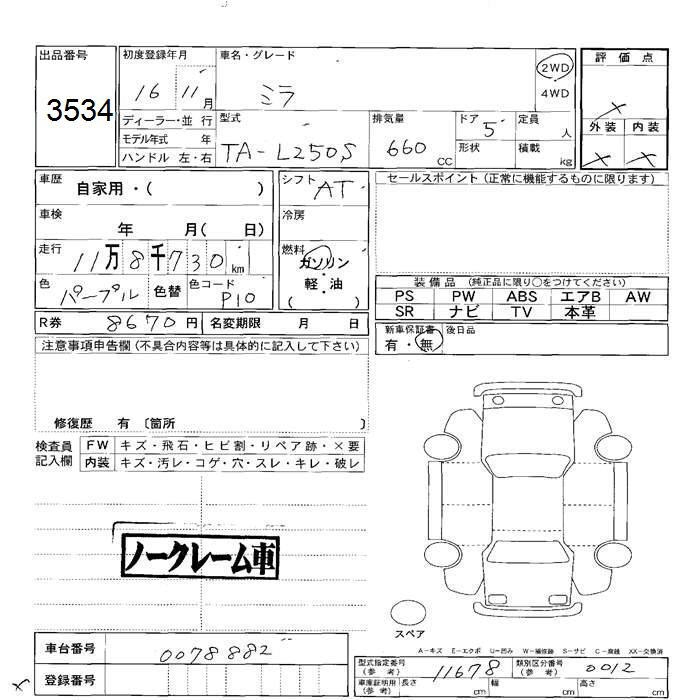 出品番号
3534
初度登録年月
16 11月
車名・グレード
ミラ
2WD
4WD
評価点
×
外装 内装
× ×
ディーラー・並行
モデル年式 年
ハンドル 左・右
型式
TA-L250S
排気量
660 CC
ドア 5
形状
定員 人
積載 kg
車歴 自家用・( )
シフト AT
セールスポイント(正常に機能するものに限ります)
車検 年 月( 日)
冷房
走行 11万8千730km
燃料
ガソリン
軽・油
( )
色 パープル 色替 色コード P10
装備品(純正品に限り○をつけてください)
PS PW ABS エアB AW
SR ナビ TV 本革
R券 8670円 名変期限 月 日
新車保証書 後日品
有・無
注意事項申告欄(不具合内容等は具体的に記入して下さい)
修復歴 有〔箇所 〕
検査員
記入欄
FW キズ・飛石・ヒビ割・リペア跡・×要
内装 キズ・汚レ・コゲ・穴・スレ・キレ・破レ
ノークレーム車
スペア
A－キズ E－エクボ U－凹み W－補修跡 S－サビ C－腐蝕 XX－交換済
車台番号 0078882
登録番号
×
型式指定番号
(参考)
11678
類別区分番号
(参考)
0012
車庫証明用
(参考)
長さ cm 幅 cm 高さ cm